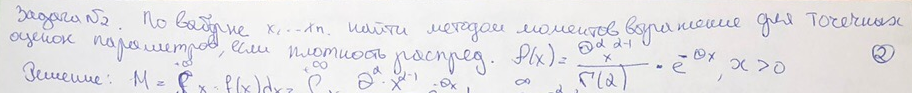 Задача №2. По выборке x₁...xn. найти методом моментов выражение для точечных
оценок параметров, если плотность распред. f(x) = θ^α x^(α-1) / Γ(α) · e^(-θx), x > 0 ②
Решение: M = ∫ x · f(x)dx = ∫ x θ^α · x^(α-1) · e^(-θx)